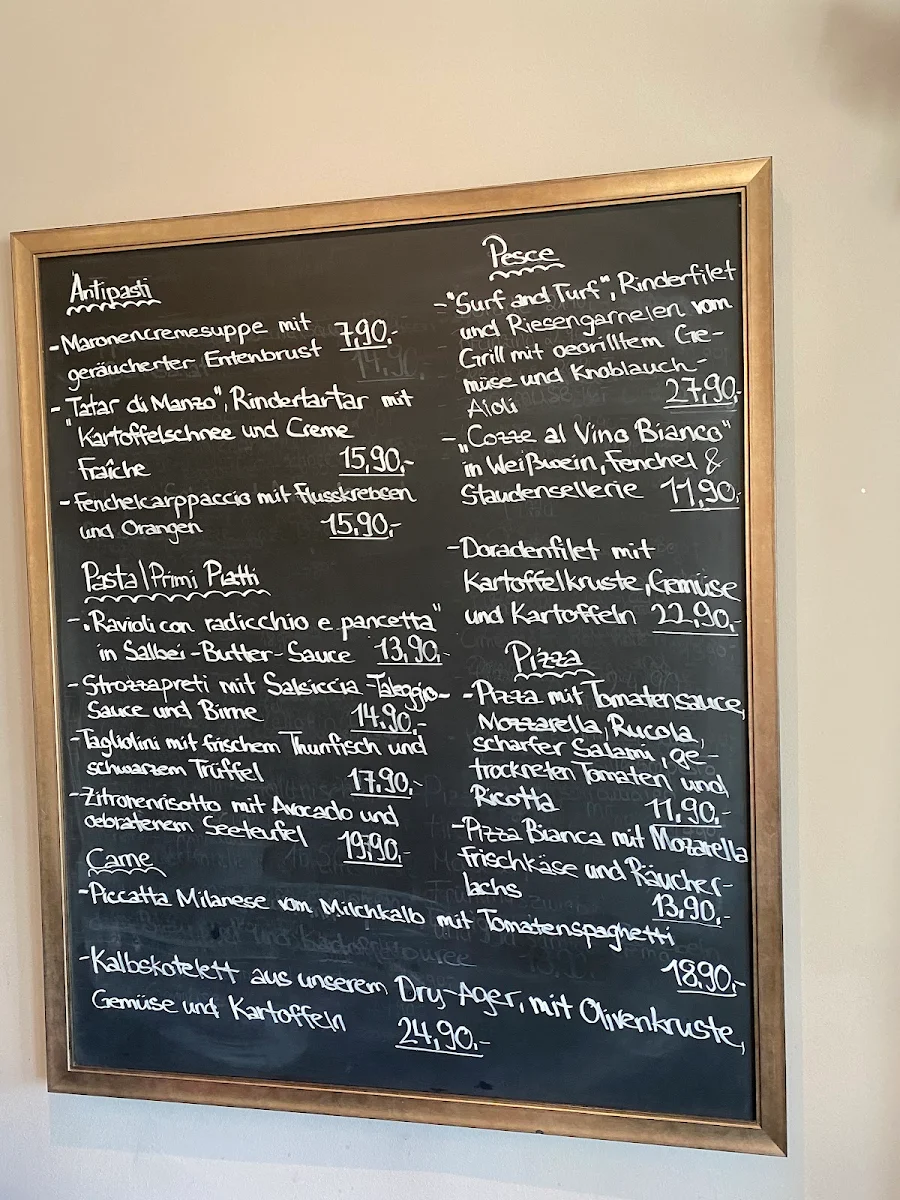 Antipasti
-Maronencremesuppe mit 7,90.-
geräucherter Entenbrust
- "Tatar di Manzo", Rindertartar mit
Kartoffelschnee und Creme
Fraîche 15,90,-
-Fenchelcarppaccio mit Flusskrebsen
und Orangen 15,90,-
Pasta/Primi Piatti
-"Ravioli con radicchio e pancetta"
in Salbei-Butter-Sauce 13,90,-
-Strozzapreti mit Salsiccia-Taleggio-
Sauce und Birne 14,90,-
-Tagliolini mit frischem Thunfisch und
schwarzem Trüffel 17,90,-
-Zitronenrisotto mit Avocado und
gebratenem Seeteufel 19,90,-
Carne
-Piccatta Milanese vom Milchkalb mit Tomatenspaghetti
18,90,-
-Kalbskotelett aus unserem Dry-Ager, mit Olivenkruste,
Gemüse und Kartoffeln 24,90.-
Pesce
-"Surf and Turf", Rinderfilet
und Riesengarnelen vom
Grill mit gegrilltem Ge-
müse und Knoblauch-
Aioli 27,90,-
-„Cozze al Vino Bianco"
in Weißwein, Fenchel &
Staudensellerie 11,90,-
-Doradenfilet mit
Kartoffelkruste, Gemüse
und Kartoffeln 22,90,-
Pizza
-Pizza mit Tomatensauce,
Mozzarella, Rucola,
scharfer Salami, ge-
trockreten Tomaten und
Ricotta 11,90,-
-Pizza Bianca mit Mozarella
Frischkäse und Räucher-
lachs 13,90,-